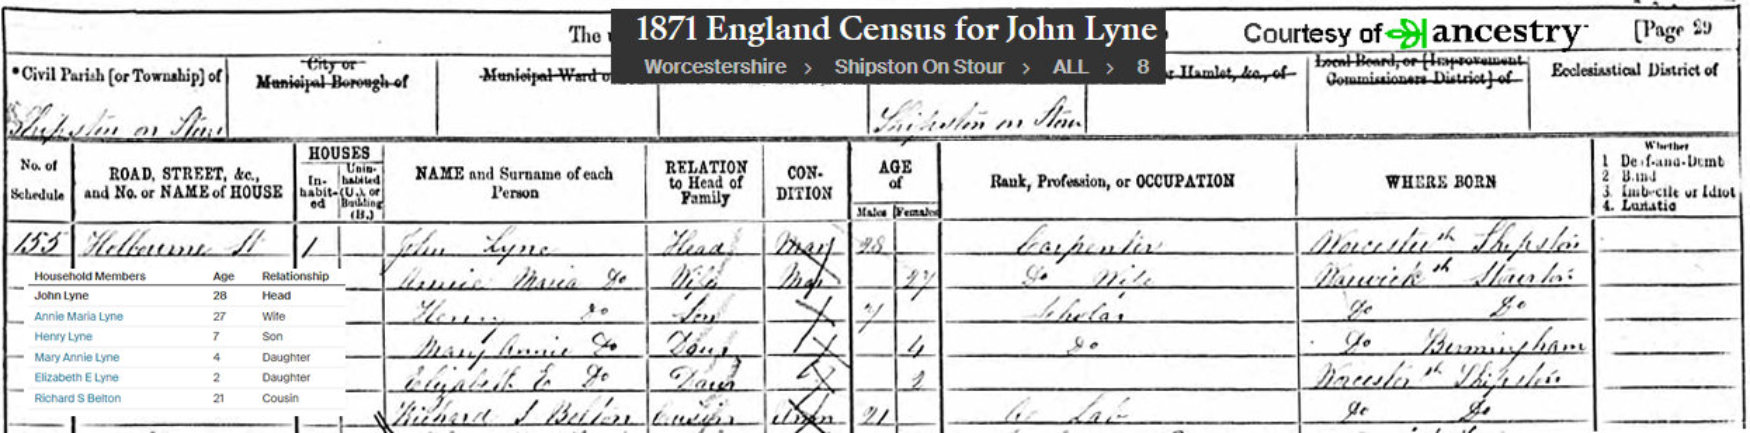 The
1871 England Census for John Lyne
Courtesy of ancestry
[Page 29
Worcestershire > Shipston On Stour > ALL > 8
*Civil Parish [or Township] of
City or
Municipal Borough of
Municipal Ward o
r Hamlet, &c., of
Local Board, or [Improvement
Commissioners District] of
Ecclesiastical District of
Shipston on Stour
Shipston on Stour
No. of
Schedule
ROAD, STREET, &c.,
and No. or NAME of HOUSE
HOUSES
In-
habit-
ed
Unin-
habited
(U.), or
Building
(B.)
NAME and Surname of each
Person
RELATION
to Head of
Family
CON-
DITION
AGE
of
Males
Females
Rank, Profession, or OCCUPATION
WHERE BORN
Whether
1 Deaf-and-Dumb
2 Blind
3. Imbecile or Idiot
4. Lunatic
155 Helbourne St 1 John Lyne Head Mar 28 Carpenter Worcester sh Shipston
Annie Maria Do Wife Mar 27 Do Wife Warwick sh Stourton
Henry Do Son 7 Scholar Do Do
Mary Annie Do Daur 4 Do Do Birmingham
Elizabeth E Do Daur 2 Worcester sh Shipston
Richard S Belton Cousin Unm 21 Lab Do Do
Household Members Age Relationship
John Lyne 28 Head
Annie Maria Lyne 27 Wife
Henry Lyne 7 Son
Mary Annie Lyne 4 Daughter
Elizabeth E Lyne 2 Daughter
Richard S Belton 21 Cousin